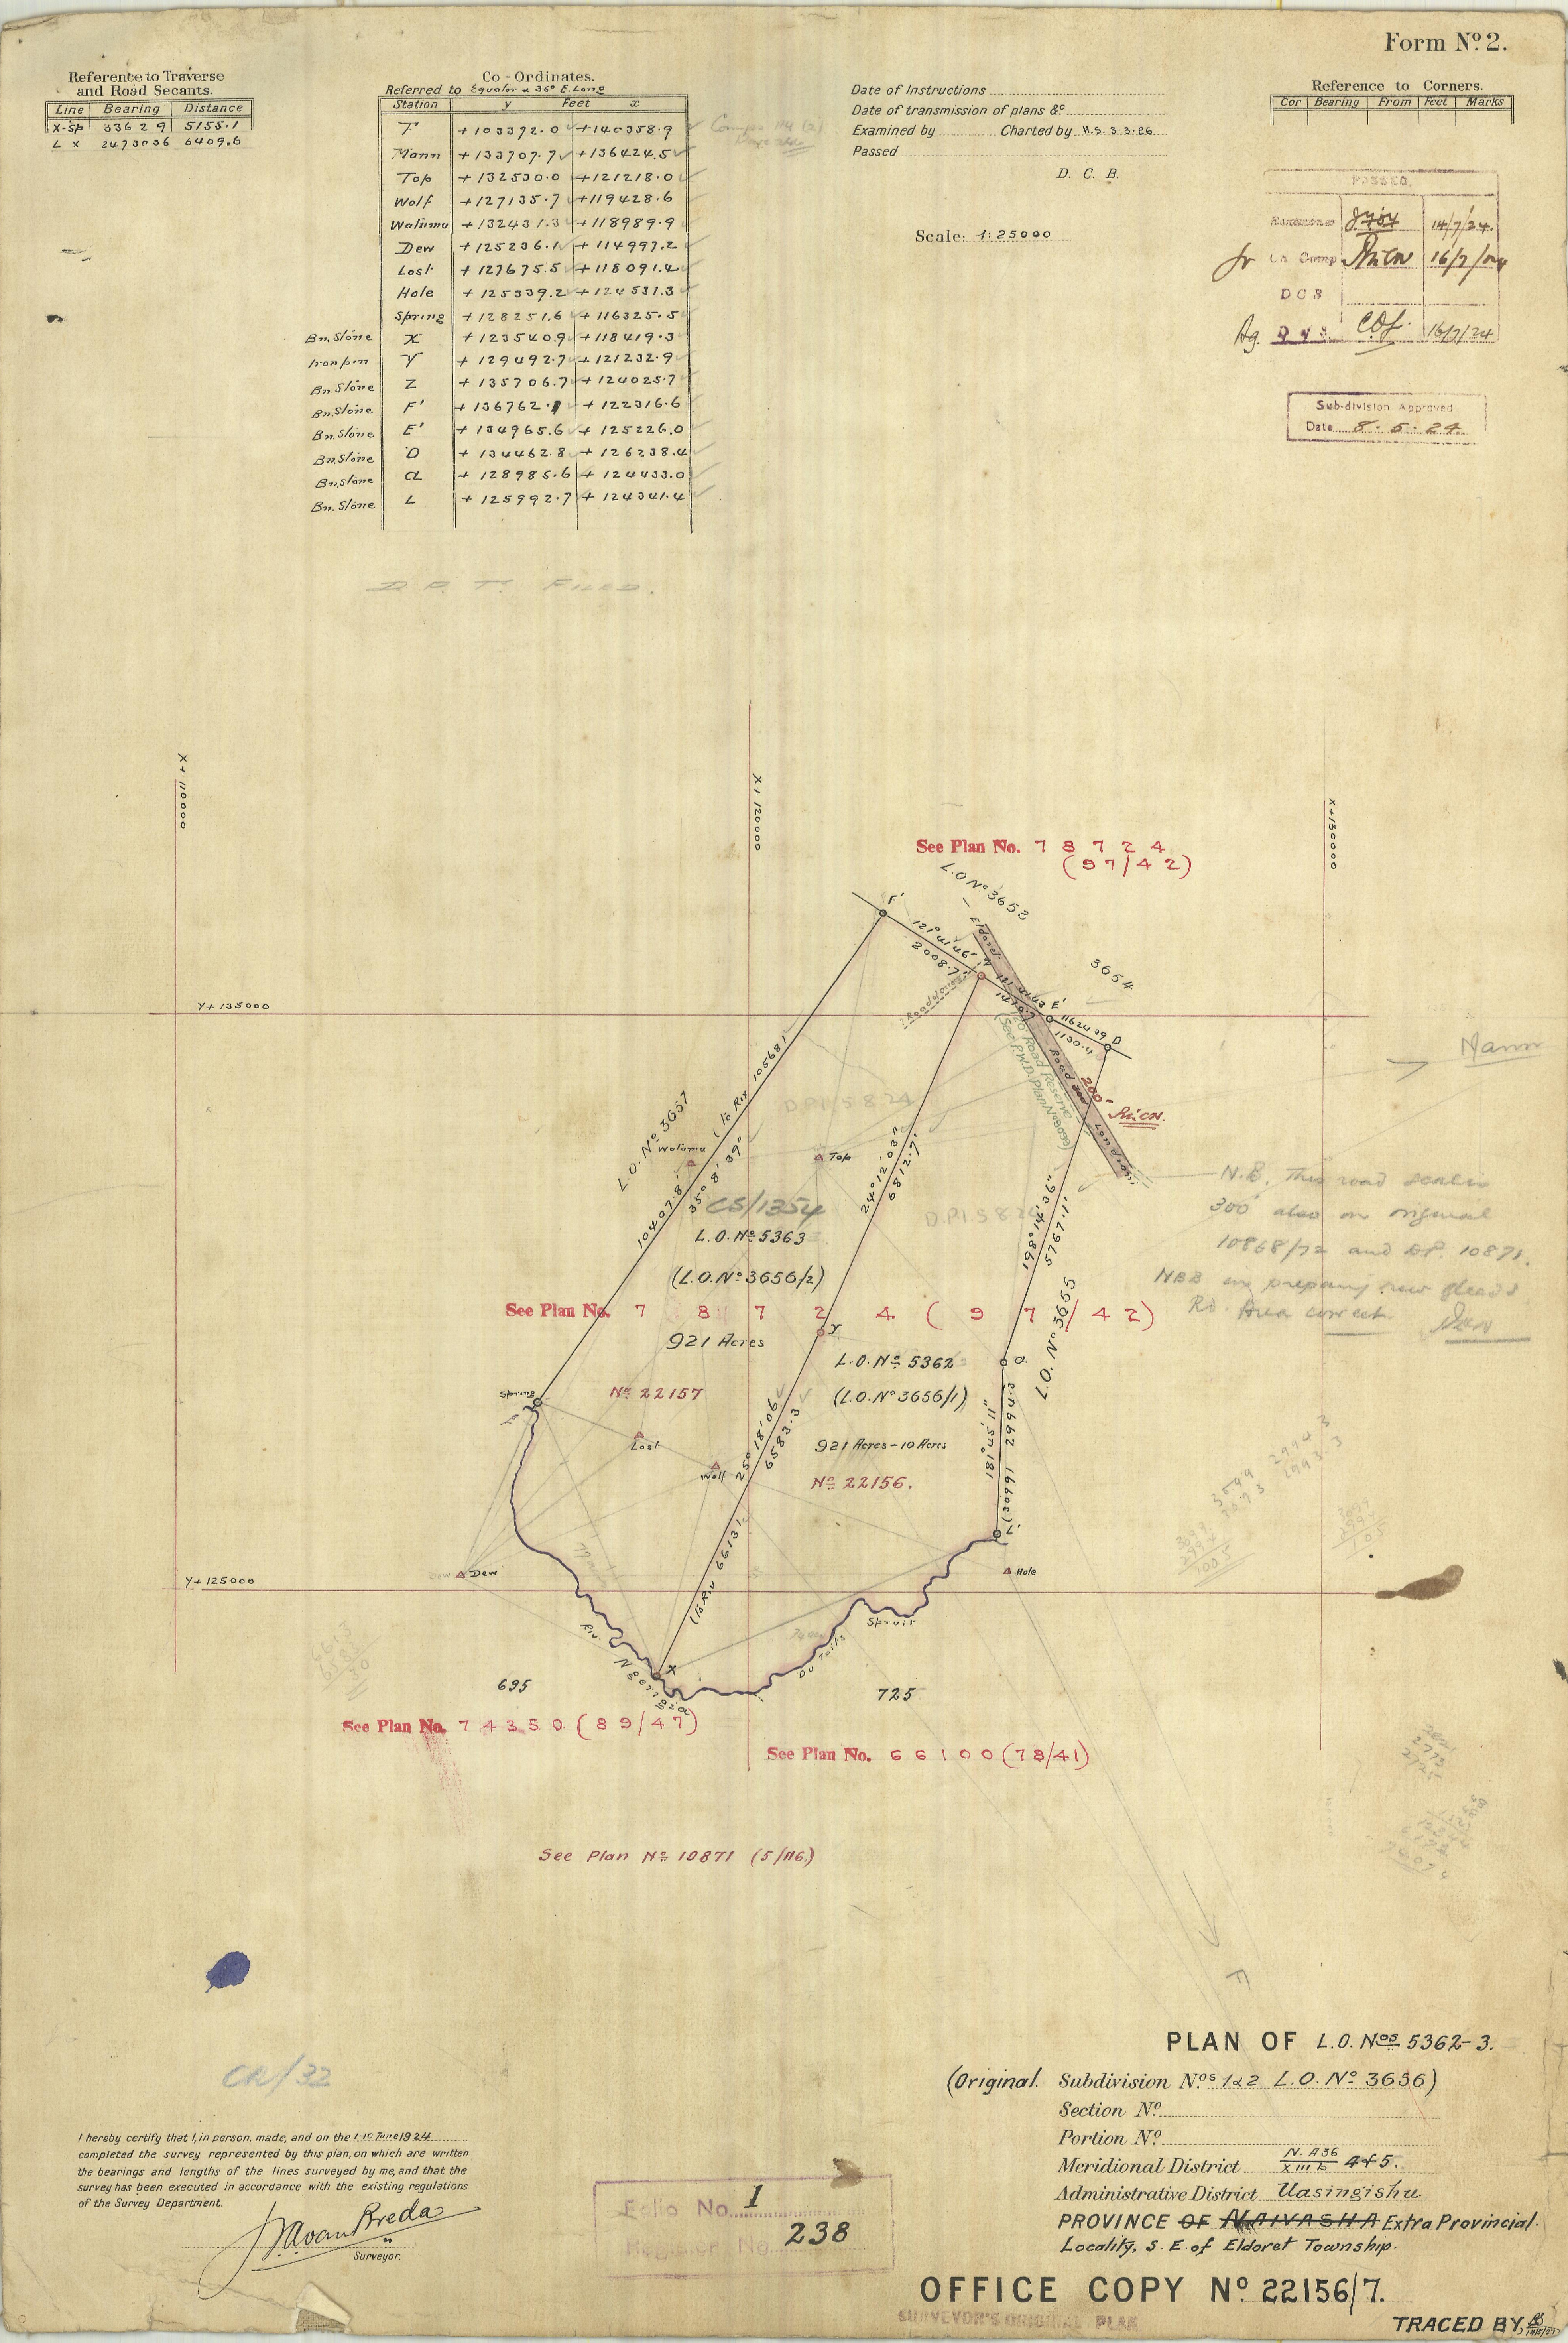 Form Nº 2.
Reference to Traverse
and Road Secants.
Line Bearing Distance
X-Sp 336 2 9 5155.1
L X 247 30 36 6409.6
Co-Ordinates.
Referred to Equator & 36° E. Long
Station y Feet x
F +103392.0 +140358.9
Mann +133707.7 +136424.5
Top +132530.0 +121218.0
Wolf +127135.7 +119428.6
Walumu +132431.3 +118989.9
Dew +125236.1 +114997.2
Lost +127675.5 +118091.4
Hole +125339.2 +124531.3
Spring +128251.6 +116325.5
Bn. Stone X +123540.9 +118419.3
Iron pin Y +129492.7 +121232.9
Bn. Stone Z +135706.7 +124025.7
Bn. Stone F' +136762.1 +122316.6
Bn. Stone E' +134965.6 +125226.0
Bn. Stone D +134462.8 +126238.4
Bn. Stone a +128985.6 +124433.0
Bn. Stone L +125992.7 +124341.4
D. P. T. FILED.
Date of Instructions
Date of transmission of plans &c
Examined by Charted by H.S. 3.3.26
Passed
D. C. B.
Scale: 1:25000
Reference to Corners.
Cor Bearing From Feet Marks
PASSED.
14/7/24
Comp 16/7/24
D C B
Ag. 16/7/24
Sub-division Approved
Date 8.5.24.
X+110000
X+120000
X+130000
See Plan No. 7 8 7 2 4
(97/42)
L.O. Nº 3653
F'
Eldoret
121° 41' 46"
2008.7
3654
E'
1162439
1130.4
D
Y+135000
Mann
Road
200'
Londiani
Road Reserve
(See P.W.D. Plan Nº 3099)
L.O. Nº 3657
(to Riv 10568)
10407.8
35° 8' 39"
Walumu
Top
D.P.I. 5824
24° 12' 03"
6812.7
198° 14' 36"
5767.1
CS/1354
L.O. Nº 5363
(L.O. Nº 3656/2)
N.B. This road scales
300' also on original
10868/72 and D.P. 10871.
NBB in preparing new deeds
Rd. Area correct
See Plan No. 7 8 7 2 4 (97/42)
921 Acres
Y
L.O. Nº 5362
(L.O. Nº 3656/1)
a
L.O. Nº 3655
Spring
Nº 22157
Lost
Wolf
25° 18' 06"
6583.3
921 Acres - 10 Acres
Nº 22156.
181° 45' 11"
2994.3
L
Dew
Hole
Y+125000
(to Riv 6613)
Riv. Nğerrgia
X
Du Toits
Spruit
695
725
See Plan No. 74350 (89/47)
See Plan No. 66100 (78/41)
See Plan Nº 10871 (5/116.)
F
CR/32
I hereby certify that I, in person, made, and on the 1-10 June 1924
completed the survey represented by this plan, on which are written
the bearings and lengths of the lines surveyed by me, and that the
survey has been executed in accordance with the existing regulations
of the Survey Department.
van Breda
Surveyor.
Folio No. 1
Register No. 238
PLAN OF L.O. Nos 5362-3.
(Original. Subdivision Nos 1&2 L.O. Nº 3656)
Section Nº
Portion Nº
Meridional District N. A36 XIII b 4&5.
Administrative District Uasingishu
PROVINCE OF NAIVASHA Extra Provincial.
Locality, S. E. of Eldoret Township.
OFFICE COPY Nº 22156/7.
SURVEYOR'S ORIGINAL PLAN
TRACED BY,